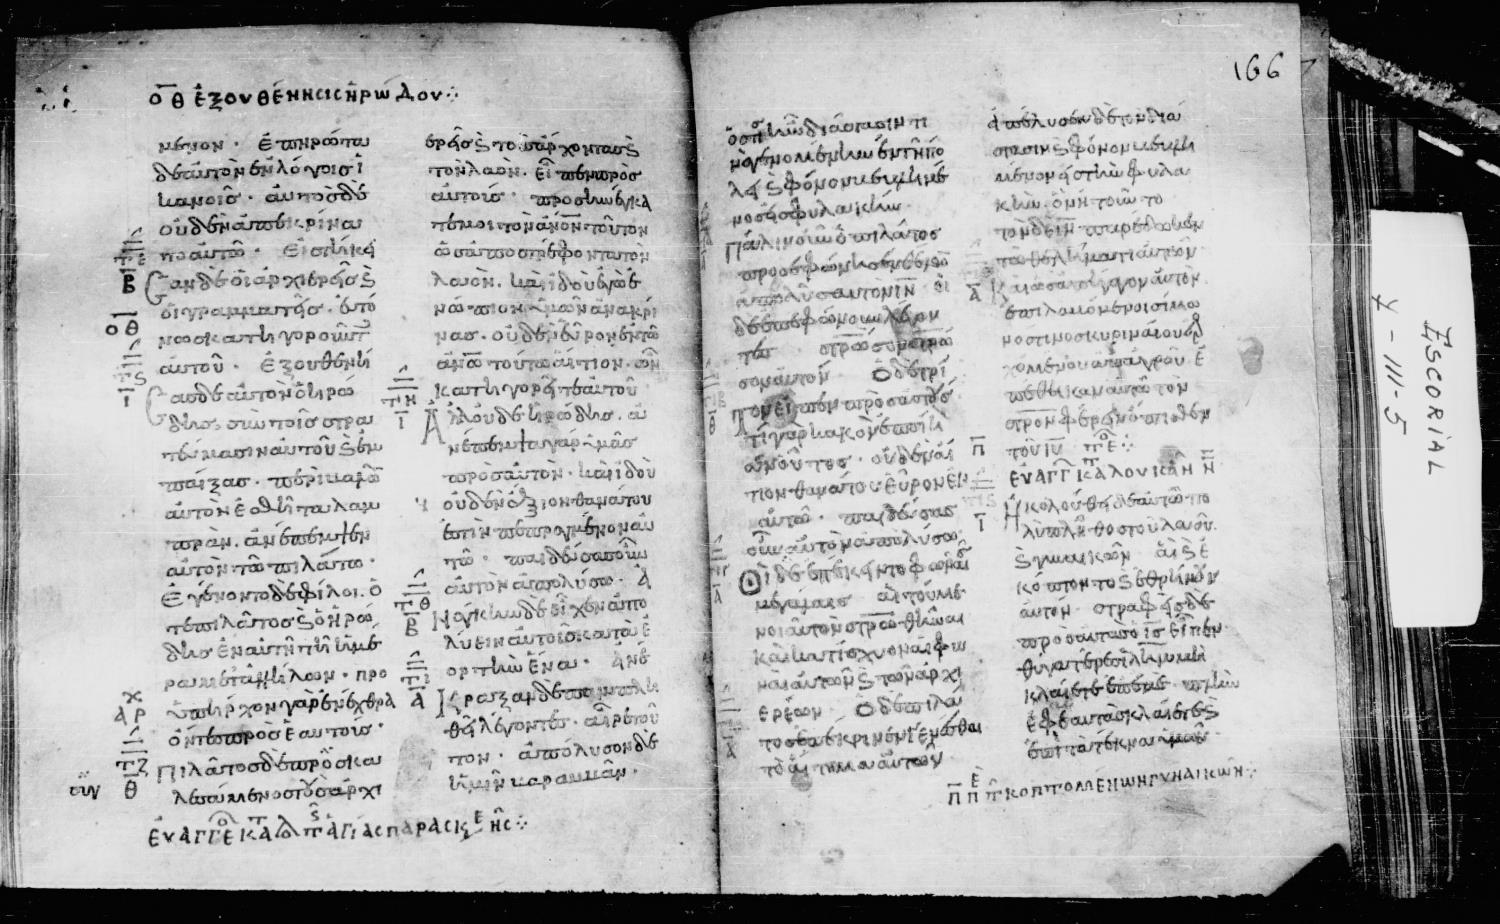 ΟΘ ἐξουθένησις ἡρώδου
μενον. Ἐπηρώτα
δὲ αὐτὸν ἐν λόγοις ἱ
κανοῖς. αὐτὸς δὲ
οὐδὲν ἀπεκρίνα
το αὐτῶ. Εἱστήκει
σαν δὲ οἱ ἀρχιερεῖς ϗ
οἱ γραμματεῖς. εὐτό
νως κατηγοροῦντ
αὐτοῦ. Ἐξουθενή
σας δὲ αὐτὸν ὁ ἡρώ
δης, σὺν τοῖς στρα
τεύμασιν αὐτοῦ ϗ ἐμ
παίξας. περιβαλὼν
αὐτὸν ἐσθῆτα λαμ
πρὰν. ἀνέπεμψεν
αὐτὸν τῶ πιλάτω.
Ἐγένοντο δὲ φίλοι. ὅ
τε πιλᾶτος ϗ ὁ ἡρώ
δης ἐν αὐτῆ τῆ ἡμέ
ρα μετὰ ἀλλήλων. προ
ϋπῆρχον γὰρ ἐν ἔχθρα
ὄντες πρὸς ἑαυτούς.
Πιλᾶτος δὲ προσκα
λεσάμενος τοὺς ἀρχι
ερεῖς ϗ τοὺς ἄρχοντας ϗ
τὸν λαὸν. εἶπεν πρὸς
αὐτούς. προσηνέγκα
τέ μοι τὸν ἄνον τοῦτον
ὡς ἀποστρέφοντα τὸν
λαὸν. καὶ ἰδοὺ ἐγὼ ἐ
νώπιον ὑμῶν ἀνακρί
νας. οὐδὲν εὗρον ἐν τῶ
ἀνω τούτω αἴτιον. ὧν
κατηγορεῖτε αὐτοῦ
Ἀλλ' οὐδὲ ἡρώδης. ἀ
νέπεμψα γὰρ ὑμᾶς
πρὸς αὐτὸν. καὶ ἰδοὺ
οὐδὲν ἄξιον θανάτου
ἐστὶν πεπραγμένον αὐ
τῶ. παιδεύσας οὖν
αὐτὸν ἀπολύσω. Ἀ
Νάγκην δὲ εἶχεν ἀπο
λύειν αὐτοῖς κατὰ ἑ
ορτὴν ἕνα. Ἀνέ
κραξαν δὲ παμπλη
θεὶ λέγοντες. αἶρε τοῦ
τον. ἀπόλυσον δὲ
ἡμῖν βαραββᾶν.
166
ὅστις ἦν διὰ στάσιν τι
νὰ γενομένην ἐν τῆ πό
λει ϗ φόνον βεβλημέ
νος εἰς φυλακὴν.
Πάλιν οὖν ὁ πιλᾶτος
προσεφώνησεν θέλων
ἀπολῦσαι τὸν ιν οἱ
δὲ ἐπεφώνουν λέγον
τες στρωσον στρω
σον αὐτόν Ὁ δὲ τρί
τον εἶπεν πρὸς αὐτούς
τί γὰρ κακὸν ἐποίη
σεν οὗτος. οὐδὲν αἴ
τιον θανάτου εὗρον ἐν
αὐτῶ. παιδεύσας
οὖν αὐτὸν ἀπολύσω
Οἱ δὲ ἐπέκειντο φωναῖς
μεγάλαις αἰτούμε
νοι αὐτὸν στρωθῆναι
καὶ κατίσχυον αἱ φω
ναὶ αὐτῶν ϗ τῶν ἀρχι
ερέων Ὁ δὲ πιλᾶ
τος ἐπέκρινεν γενέσθαι
τὸ αἴτημα αὐτῶν
ἀπέλυσεν δὲ τὸν διὰ
στάσιν ϗ φόνον βεβλη
μένον εἰς τὴν φυλα
κὴν ὃν ἠτοῦντο
τὸν δὲ ιν παρέδωκεν
τῶ θελήματι αὐτῶν
Καὶ ὡς ἀπήγαγον αὐτὸν.
ἐπιλαβόμενοι σίμω
νός τινος κυριναίου ἐρ
χομένου ἀπ' ἀγροῦ. ἐ
πέθηκαν αὐτῶ τὸν
στρον φέρειν ὄπισθεν
τοῦ ιυ
Ἠκολούθει δὲ αὐτῶ πο
λὺ πλῆθος τοῦ λαοῦ.
ϗ γυναικῶν αἳ ϗ ἐ
κόπτοντο ϗ ἐθρήνουν
αὐτόν στραφεὶς δὲ
πρὸς αὐτὰς ὁ ις εἶπεν
θυγατέρες ιλημ μὴ
κλαίετε ἐπ' ἐμέ πλὴν
ἐφ' ἑαυτὰς κλαίετε ϗ
ἐπὶ τὰ τέκνα ὑμῶν
ΠΕ Π Τ κοπτομένων γυναικῶν
ESCORIAL
Ψ-III-5